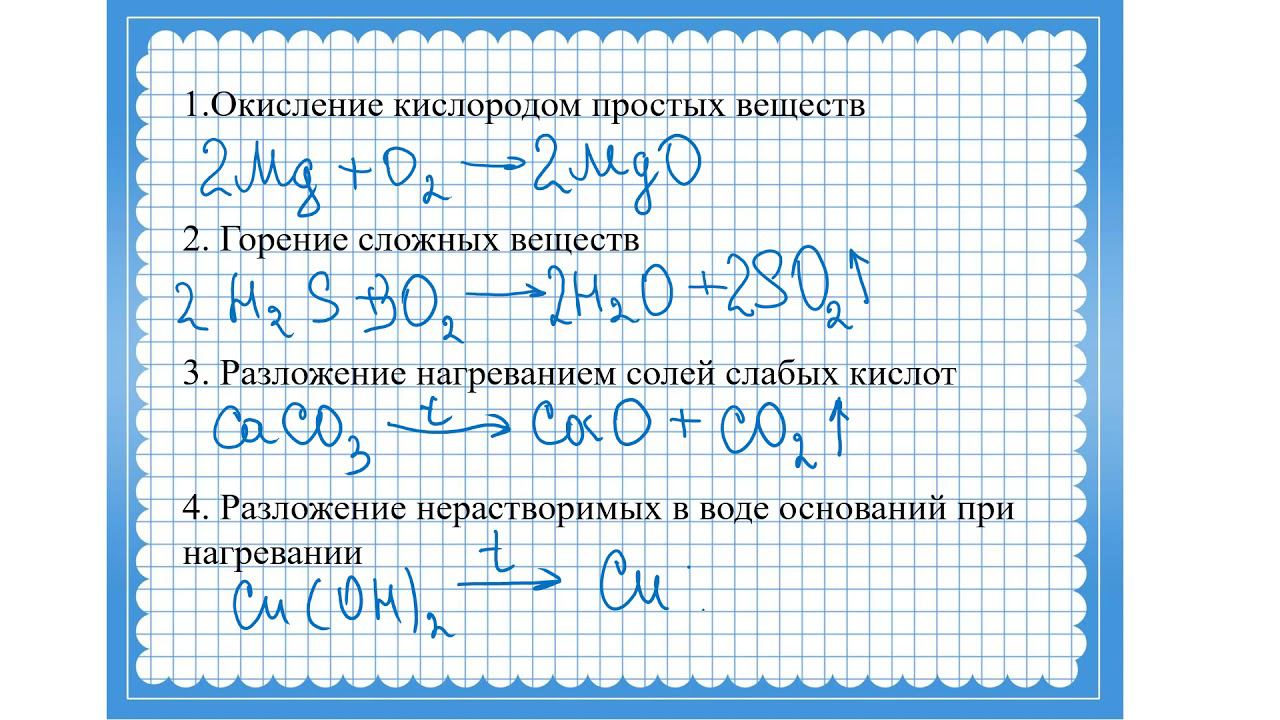 1.Окисление кислородом простых веществ
2Mg + O₂ → 2MgO
2. Горение сложных веществ
2H₂S + 3O₂ → 2H₂O + 2SO₂↑
3. Разложение нагреванием солей слабых кислот
CaCO₃ t→ CaO + CO₂↑
4. Разложение нерастворимых в воде оснований при
нагревании
Cu(OH)₂ t→ Cu